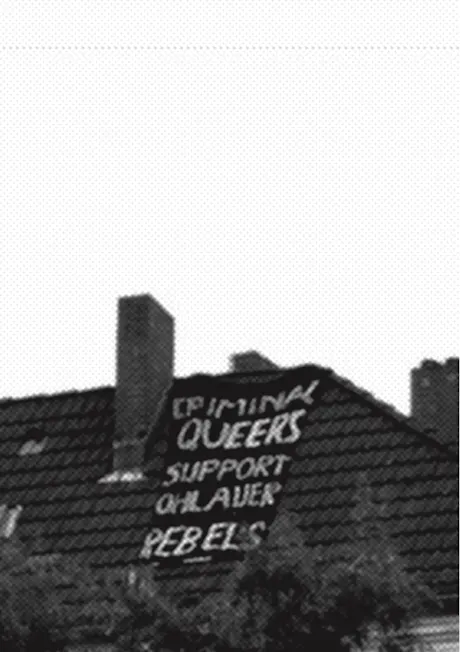 CRIMINAL
QUEERS
SUPPORT
OHLAUER
REBELS